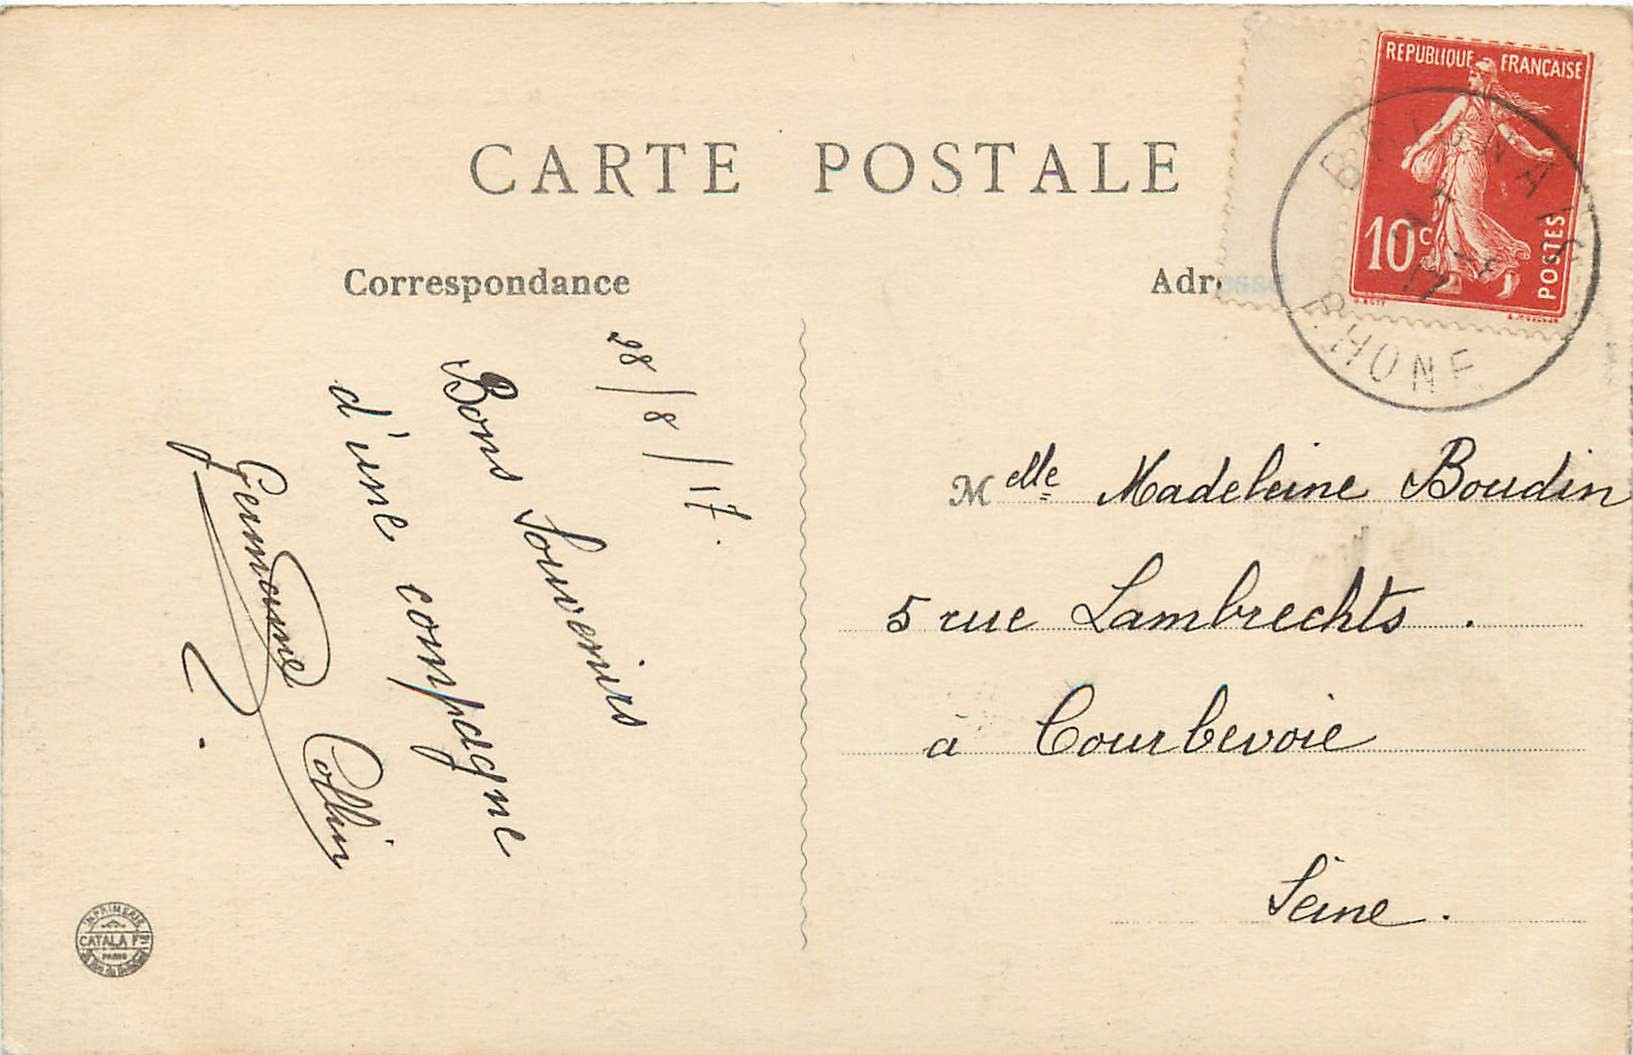 CARTE POSTALE
Correspondance
28/8/17.
Bons Souvenirs
d'une compagne
Germaine Collin
IMPRIMERIE
CATALA Fres
PARIS
Adresse
REPUBLIQUE FRANÇAISE
10c
POSTES
BRIGNAIS
17
RHONE
Melle Madeleine Boudin
5 rue Lambrechts.
à Courbevoie
Seine.